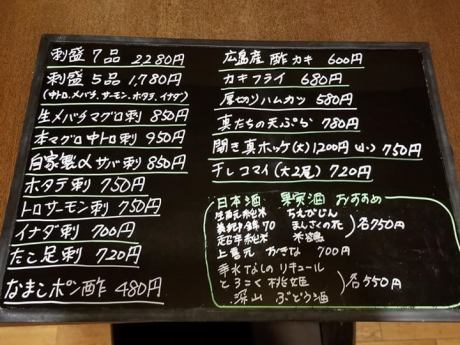 刺盛 7品 2280円
刺盛 5品 1,780円
(中トロ、メバチ、サーモン、ホタテ、イナダ)
生メバチマグロ刺 850円
本マグロ中トロ刺 950円
自家製〆サバ刺 850円
ホタテ刺 750円
トロサーモン刺 750円
イナダ刺 700円
たこ足刺 720円
なまこポン酢 480円
広島産 酢カキ 600円
カキフライ 680円
厚切りハムカツ 580円
真たちの天ぷら 780円
開き真ホッケ(大)1200円 (小) 750円
干しコマイ(大2尾) 720円
日本酒 果実酒 おすすめ
純米 ちえびじん
70 まんさくの花
純米
各750円
700円
幸水なしのリキュール
とろこく桃姫
深山 ぶどう酒
各550円